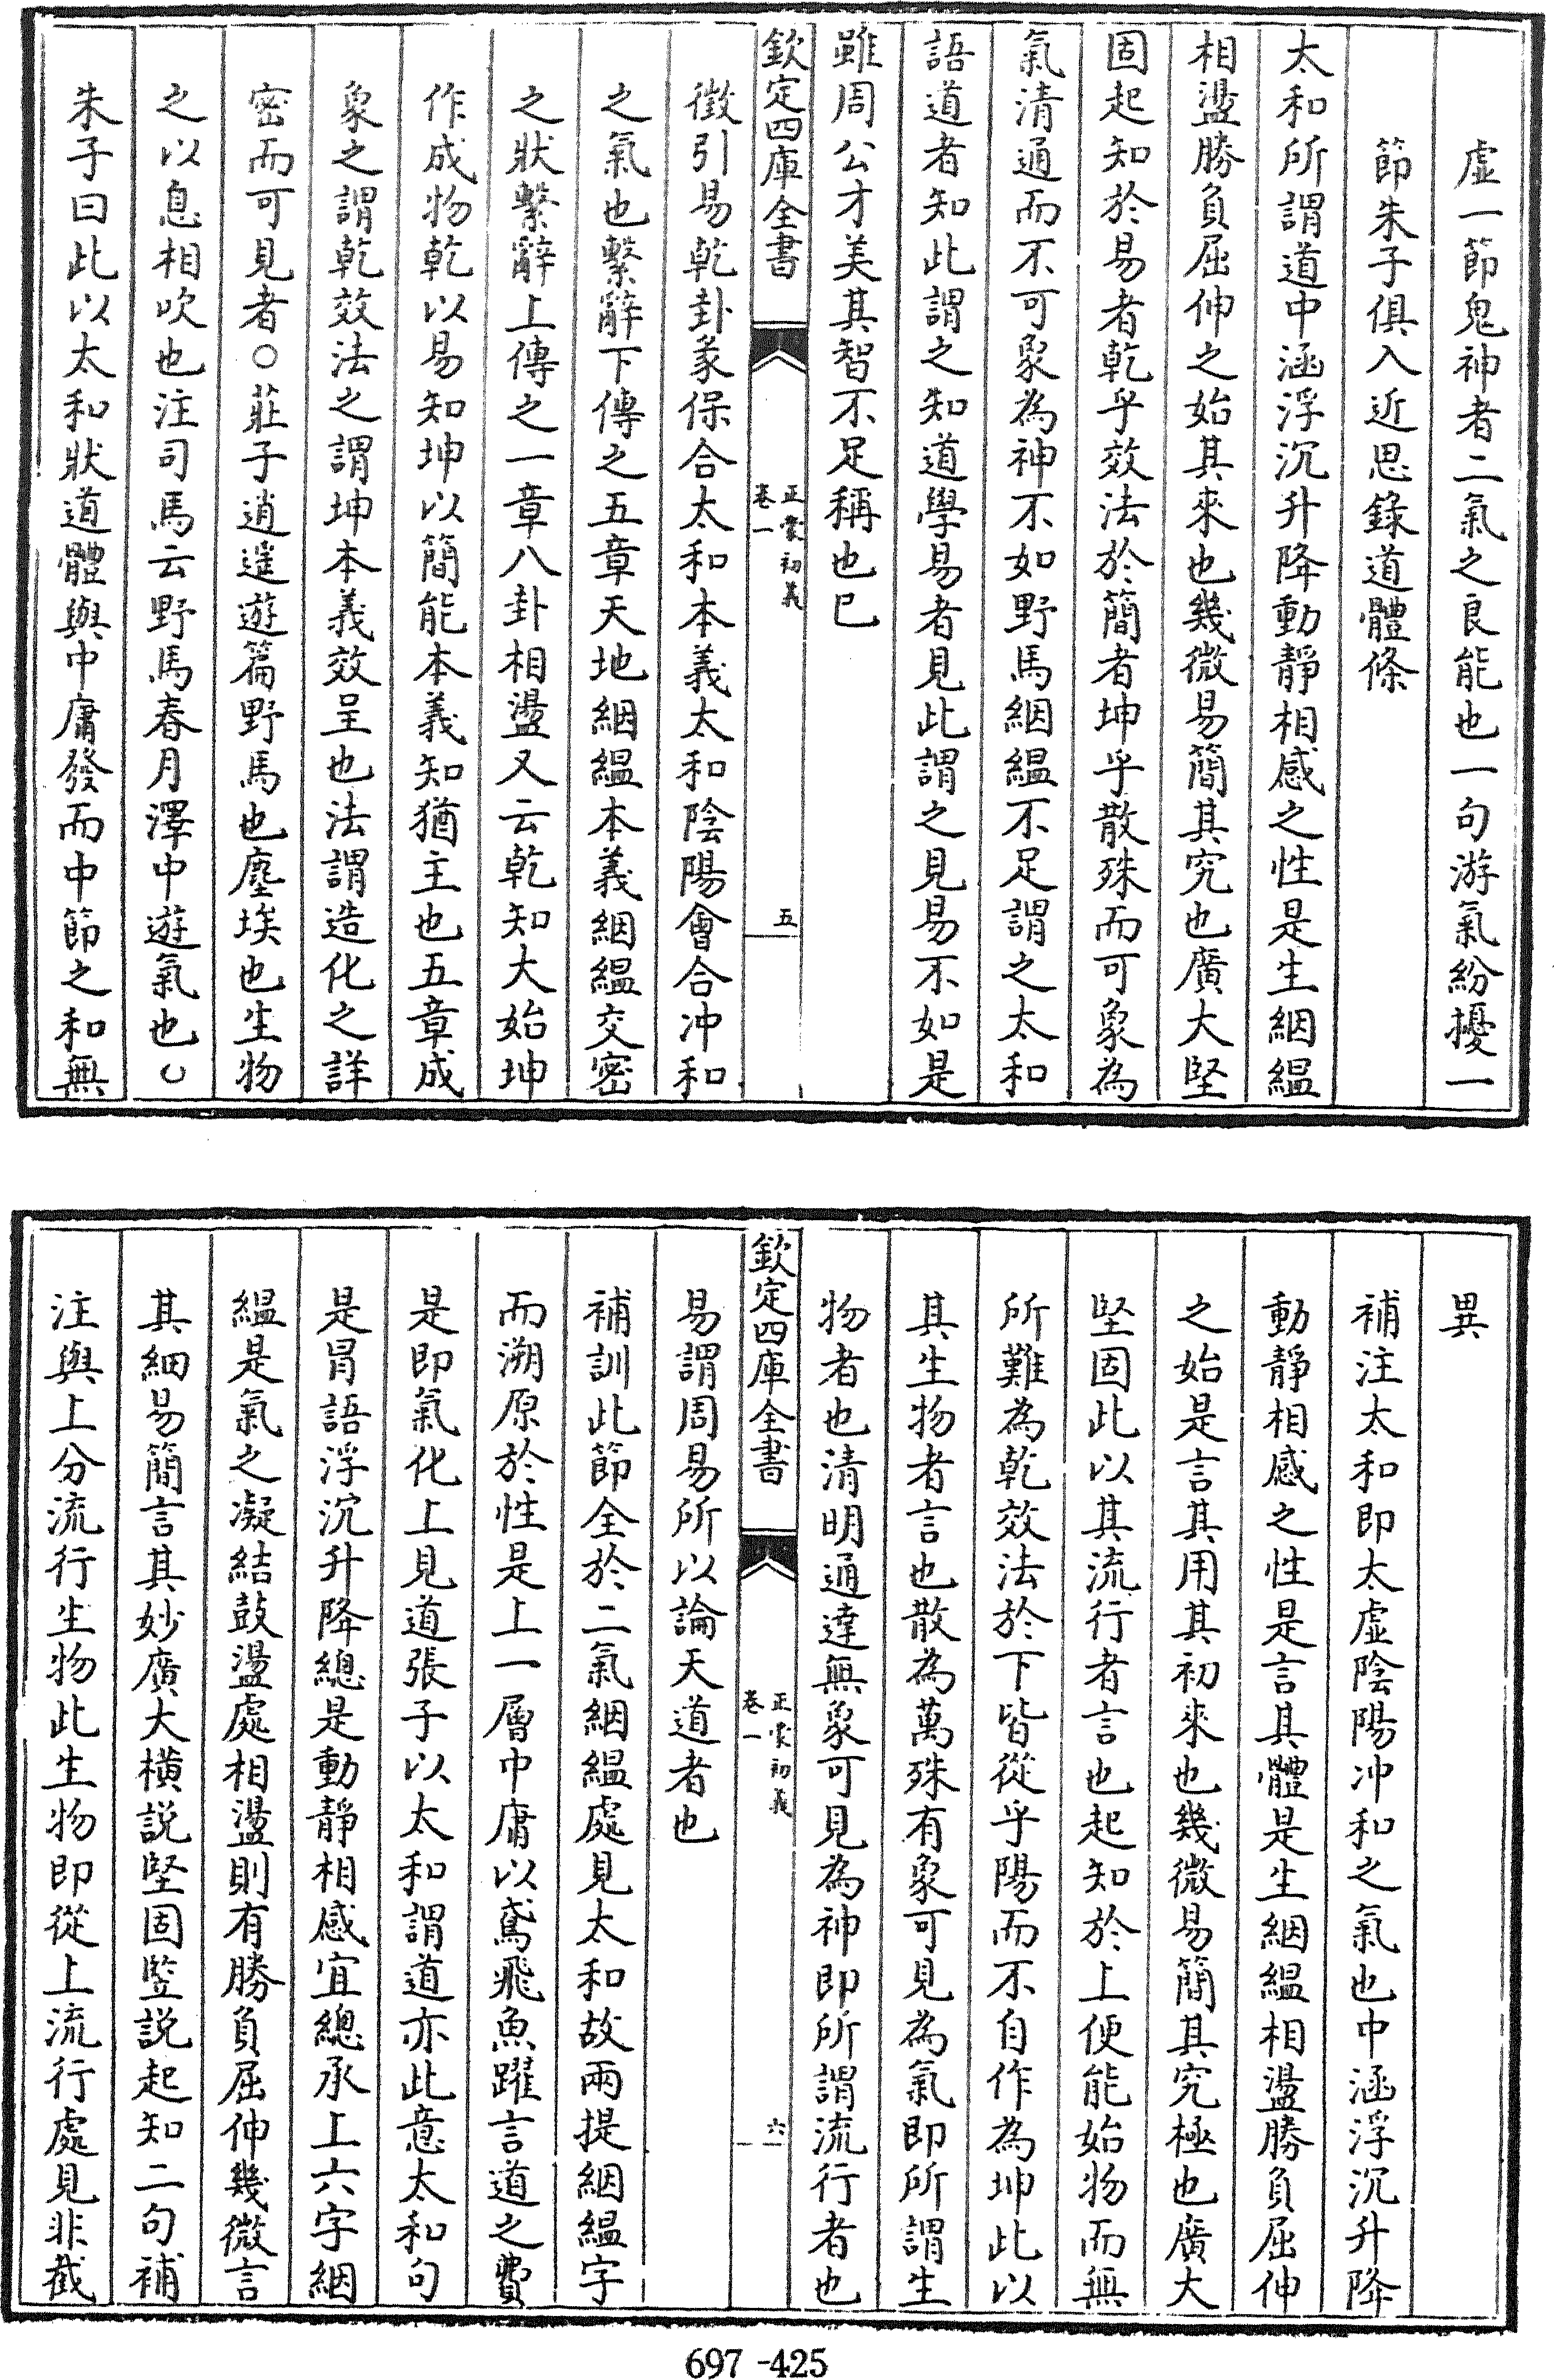 虚一節鬼神者二氣之良能也一句游氣紛擾一
節朱子俱入近思錄道體條
太和所謂道中涵浮沉升降動靜相感之性是生絪縕
相盪勝負屈伸之始其來也幾微易簡其究也廣大堅
固起知於易者乾乎效法於簡者坤乎散殊而可象為
氣清通而不可象為神不如野馬絪縕不足謂之太和
語道者知此謂之知道學易者見此謂之見易不如是
雖周公才美其智不足稱也已
欽定四庫全書
正蒙初義
卷一
五
徵引易乾卦彖保合太和本義太和陰陽會合冲和
之氣也繫辭下傳之五章天地絪縕本義絪縕交密
之狀繫辭上傳之一章八卦相盪又云乾知大始坤
作成物乾以易知坤以簡能本義知猶主也五章成
象之謂乾效法之謂坤本義效呈也法謂造化之詳
密而可見者○莊子逍遥遊篇野馬也塵埃也生物
之以息相吹也注司馬云野馬春月澤中遊氣也○
朱子曰此以太和狀道體與中庸發而中節之和無
異
補注太和即太虚陰陽冲和之氣也中涵浮沉升降
動靜相感之性是言其體是生絪縕相盪勝負屈伸
之始是言其用其初來也幾微易簡其究極也廣大
堅固此以其流行者言也起知於上便能始物而無
所難為乾效法於下皆從乎陽而不自作為坤此以
其生物者言也散為萬殊有象可見為氣即所謂生
物者也清明通達無象可見為神即所謂流行者也
欽定四庫全書
正蒙初義
卷一
六
易謂周易所以論天道者也
補訓此節全於二氣絪縕處見太和故兩提絪縕字
而溯原於性是上一層中庸以鳶飛魚躍言道之費
是即氣化上見道張子以太和謂道亦此意太和句
是冐語浮沉升降總是動靜相感宜總承上六字絪
縕是氣之凝結鼓盪處相盪則有勝負屈伸幾微言
其細易簡言其妙廣大橫説堅固竪説起知二句補
注與上分流行生物此生物即從上流行處見非截
697-425